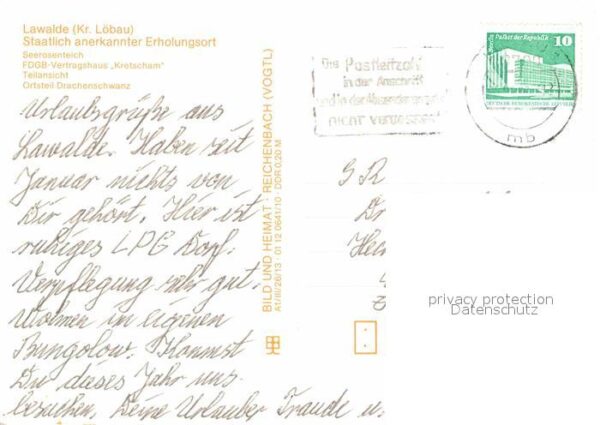 Lawalde (Kr. Löbau)
Staatlich anerkannter Erholungsort
Seerosenteich
FDGB-Vertragshaus „Kretscham"
Teilansicht
Ortsteil Drachenschwanz
Urlaubsgrüße aus
Lawalde. Haben seit
Januar nichts von
Dir gehört. Hier ist
ruhiges LPG Dorf.
Verpflegung sehr gut.
Wohnen in eigenen
Bungolow. Kommst
Du dieses Jahr uns
besuchen. Deine Urlauber Traude u.
BILD UND HEIMAT · REICHENBACH (VOGTL)
A1/III/26/13 · 01 12 0641/10 · DDR 0,20 M
Die Postleitzahl
in der Anschrift
und in der Absenderangabe
nicht vergessen!
Berlin Palast der Republik
10
DEUTSCHE DEMOKRATISCHE REPUBLIK
mb
privacy protection
Datenschutz